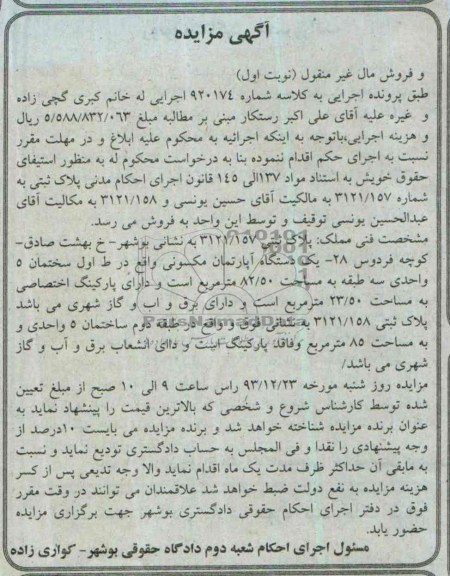 آگهی مزایده
و فروش مال غیر منقول (نوبت اول)
طبق پرونده اجرایی به کلاسه شماره ۹۲۰۱۷۴ اجرایی له خانم کبری گچی زاده
و غیره علیه آقای علی اکبر رستکار مبنی بر مطالبه مبلغ ۵/۵۸۸/۸۳۲/۰۶۳ ریال
و هزینه اجرایی،باتوجه به اینکه اجرائیه به محکوم علیه ابلاغ و در مهلت مقرر
نسبت به اجرای حکم اقدام ننموده بنا به درخواست محکوم له به منظور استیفای
حقوق خویش به استناد مواد ۱۳۷الی ۱۴۵ قانون اجرای احکام مدنی پلاک ثبتی به
شماره ۳۱۲۱/۱۵۷ به مالکیت آقای حسین یونسی و ۳۱۲۱/۱۵۸ به مکالیت آقای
عبدالحسین یونسی توقیف و توسط این واحد به فروش می رسد.
مشخصت فنی مملک: پلاک ثبتی ۳۱۲۱/۱۵۷ به نشانی بوشهر- خ بهشت صادق-
کوچه فردوس ۲۸- یک دستگاه آپارتمان مکسونی واقع در ط اول سختمان ۵
واحدی سه طبقه به مساحت ۸۲/۵۰ مترمربع است و دارای پارکینگ اختصاصی
به مساحت ۲۳/۵۰ مترمربع است و دارای برق و اب و گاز شهری می باشد
پلاک ثبتی ۳۱۲۱/۱۵۸ به نشانی فوق و واقع در طبقه دوم ساختمان ۵ واحدی و
به مساحت ۸۵ مترمربع وفاقد پارکینگ است و داای انشعاب برق و آب و گاز
شهری می باشد/
مزایده روز شنبه مورخه ۹۳/۱۲/۲۳ راس ساعت ۹ الی ۱۰ صبح از مبلغ تعیین
شده توسط کارشناس شروع و شخصی که بالاترین قیمت را پینشهاد نماید به
عنوان برنده مزایده شناخته خواهد شد و برنده مزایده می بایست ۱۰درصد از
وجه پیشنهادی را نقدا و فی المجلس به حساب دادگستری تودیع نماید و نسبت
به مابقی آن حداکثر ظرف مدت یک ماه اقدام نماید والا وجه تدیعی پس از کسر
هزینه مزایده به نفع دولت ضبط خواهد شد علاقمندان می توانند در وقت مقرر
فوق در دفتر اجرای احکام حقوقی دادگستری بوشهر جهت برگزاری مزایده
حضور یابد.
مسئول اجرای احکام شعبه دوم دادگاه حقوقی بوشهر- کواری زاده